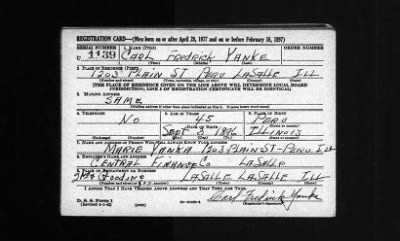 REGISTRATION CARD—(Men born on or after April 28, 1877 and on or before February 16, 1897)
SERIAL NUMBER 1. NAME (Print) ORDER NUMBER
U 1139 CARL FREDRICK YANKE
(First) (Middle) (Last)
2. PLACE OF RESIDENCE (Print)
1203 PLAIN ST PERU LASALLE ILL
(Number and street) (Town, township, village, or city) (County) (State)
[THE PLACE OF RESIDENCE GIVEN ON THE LINE ABOVE WILL DETERMINE LOCAL BOARD
JURISDICTION; LINE 2 OF REGISTRATION CERTIFICATE WILL BE IDENTICAL]
3. MAILING ADDRESS
SAME
[Mailing address if other than place indicated on line 2. If same insert word same]
4. TELEPHONE 5. AGE IN YEARS 6. PLACE OF BIRTH
NO 45 PERU
DATE OF BIRTH (Town or county)
SEPT 9 1896 ILLINOIS
(Exchange) (Number) (Mo.) (Day) (Yr.) (State or country)
7. NAME AND ADDRESS OF PERSON WHO WILL ALWAYS KNOW YOUR ADDRESS
MARIE YANKA 1203 PLAIN ST-PERU ILL
8. EMPLOYER'S NAME AND ADDRESS
CENTRAL CO LASALLE
9. PLACE OF EMPLOYMENT OR BUSINESS
GOODING LASALLE LASALLE ILL
(Number and street or R. F. D. number) (Town) (County) (State)
I AFFIRM THAT I HAVE VERIFIED ABOVE ANSWERS AND THAT THEY ARE TRUE.
D. S. S. Form 1
Carl Fredrick Yanke
(Registrant's signature)